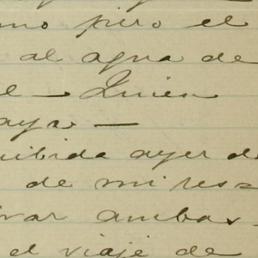 mo pero el
al agua de
el - Quien
aya —
cibida ayer de
de mi res=
var ambas
el viaje de